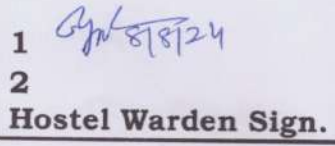 1 8/8/24
2
Hostel Warden Sign.